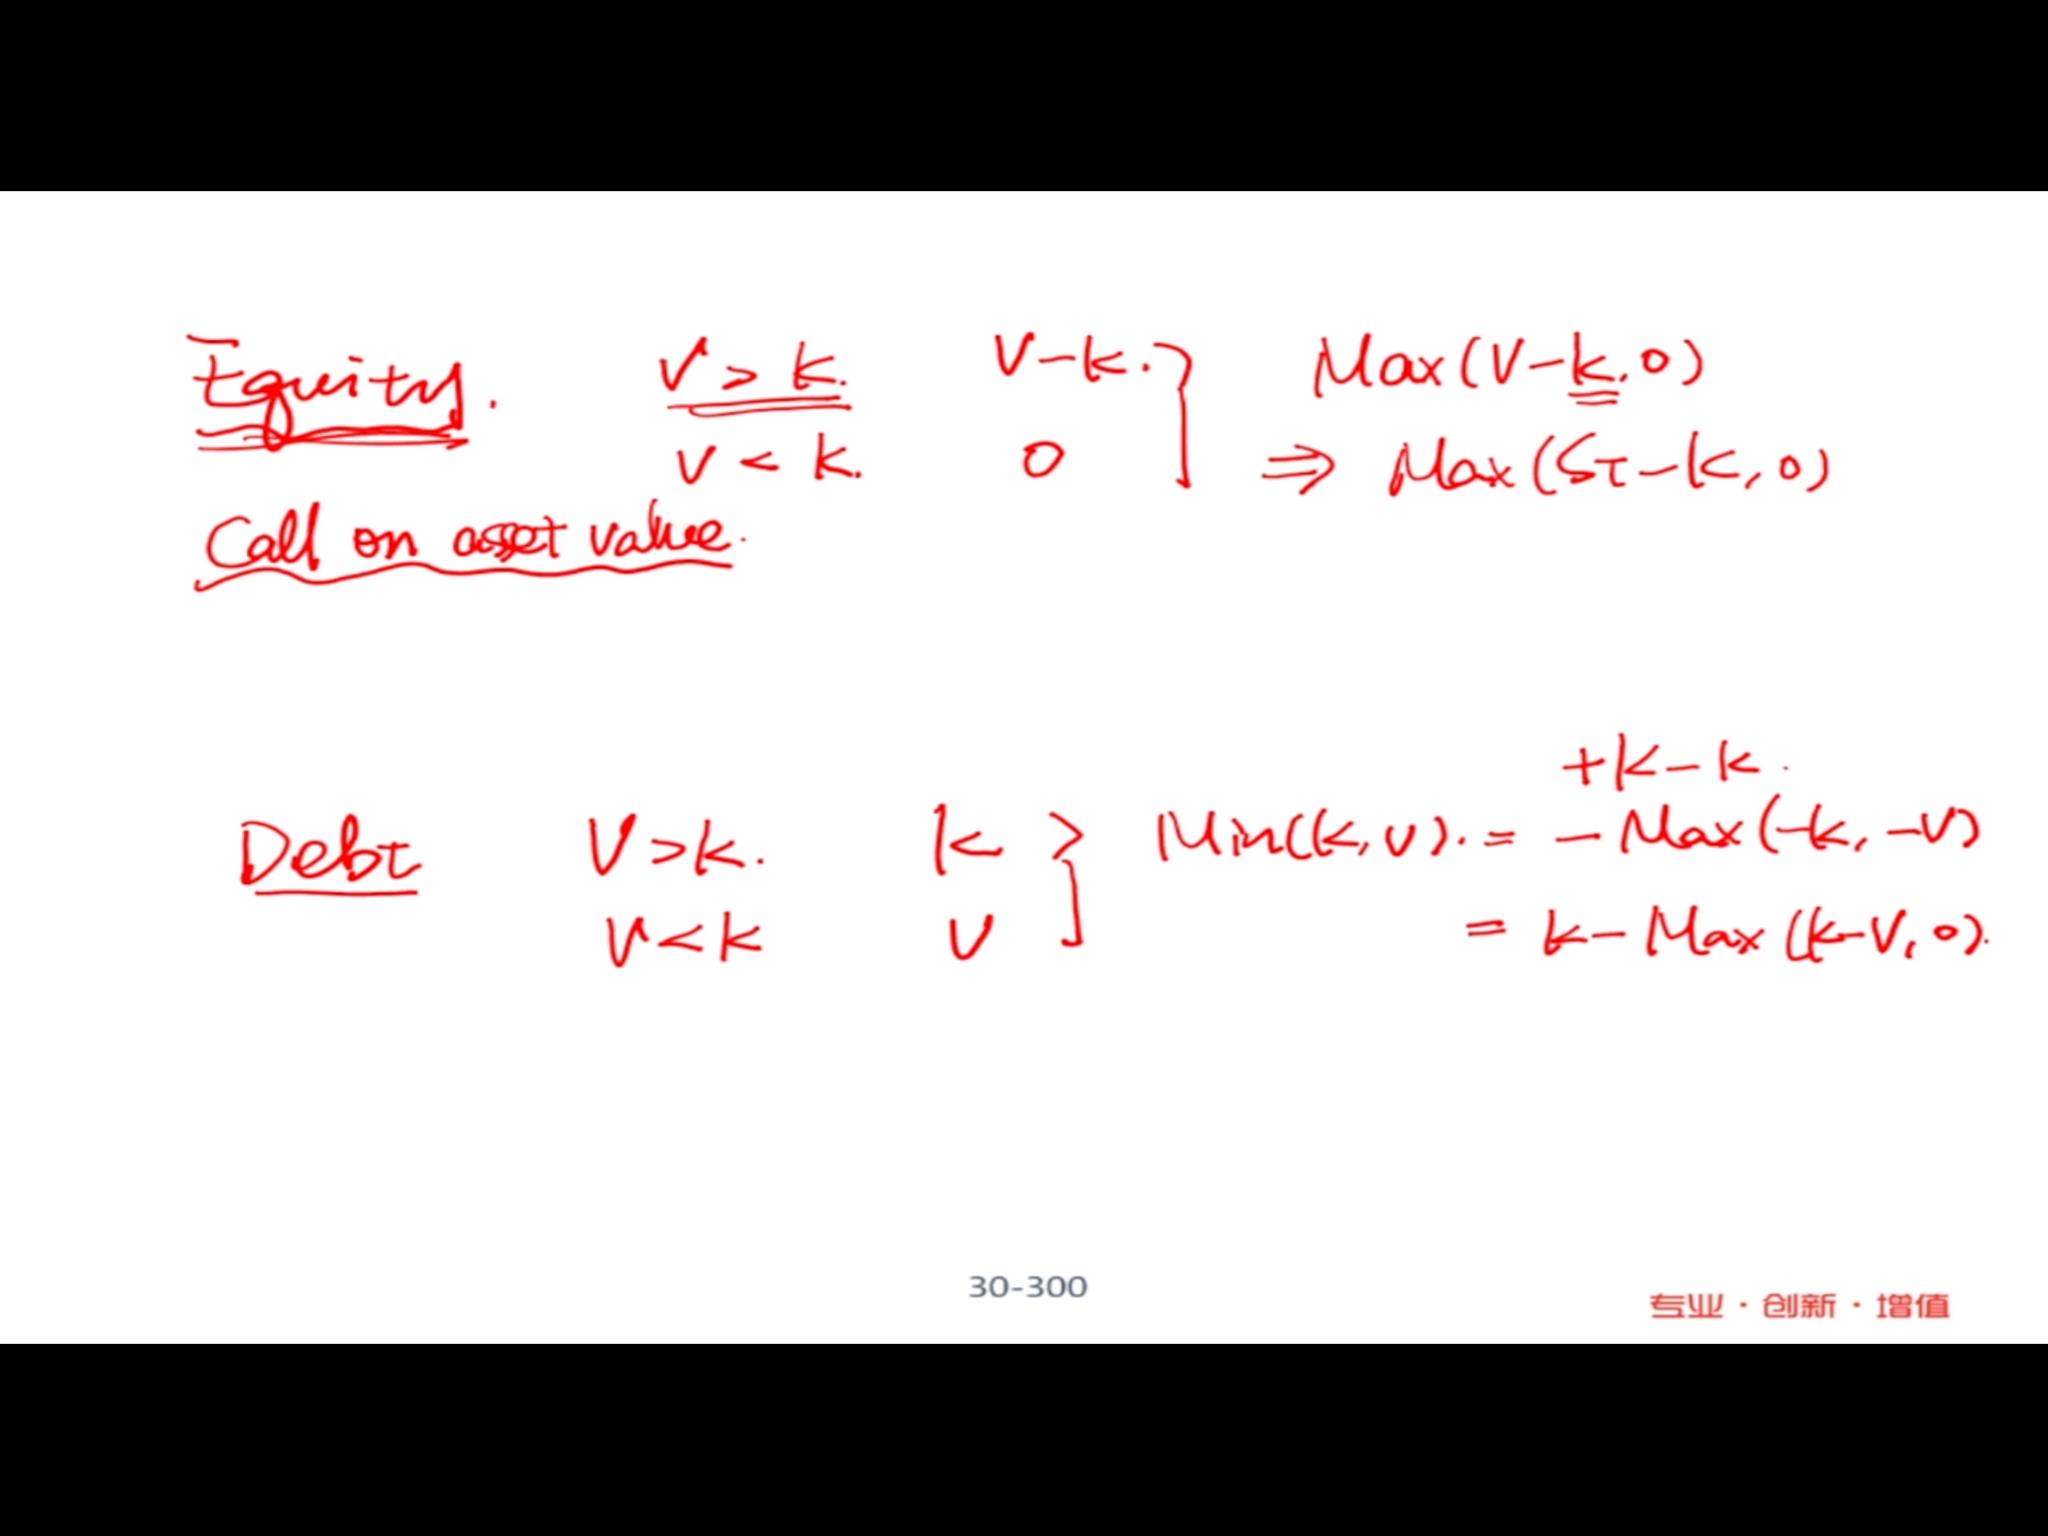 Equity. V > k. V-k. } Max(V-k, 0)
V < k. 0 ⇒ Max(ST-K, 0)
Call on asset value.
+K-k.
Debt V>k. k } Min(k, v). = -Max(-k, -V)
V<k V = k-Max(k-V, 0).
30-300
专业·创新·增值